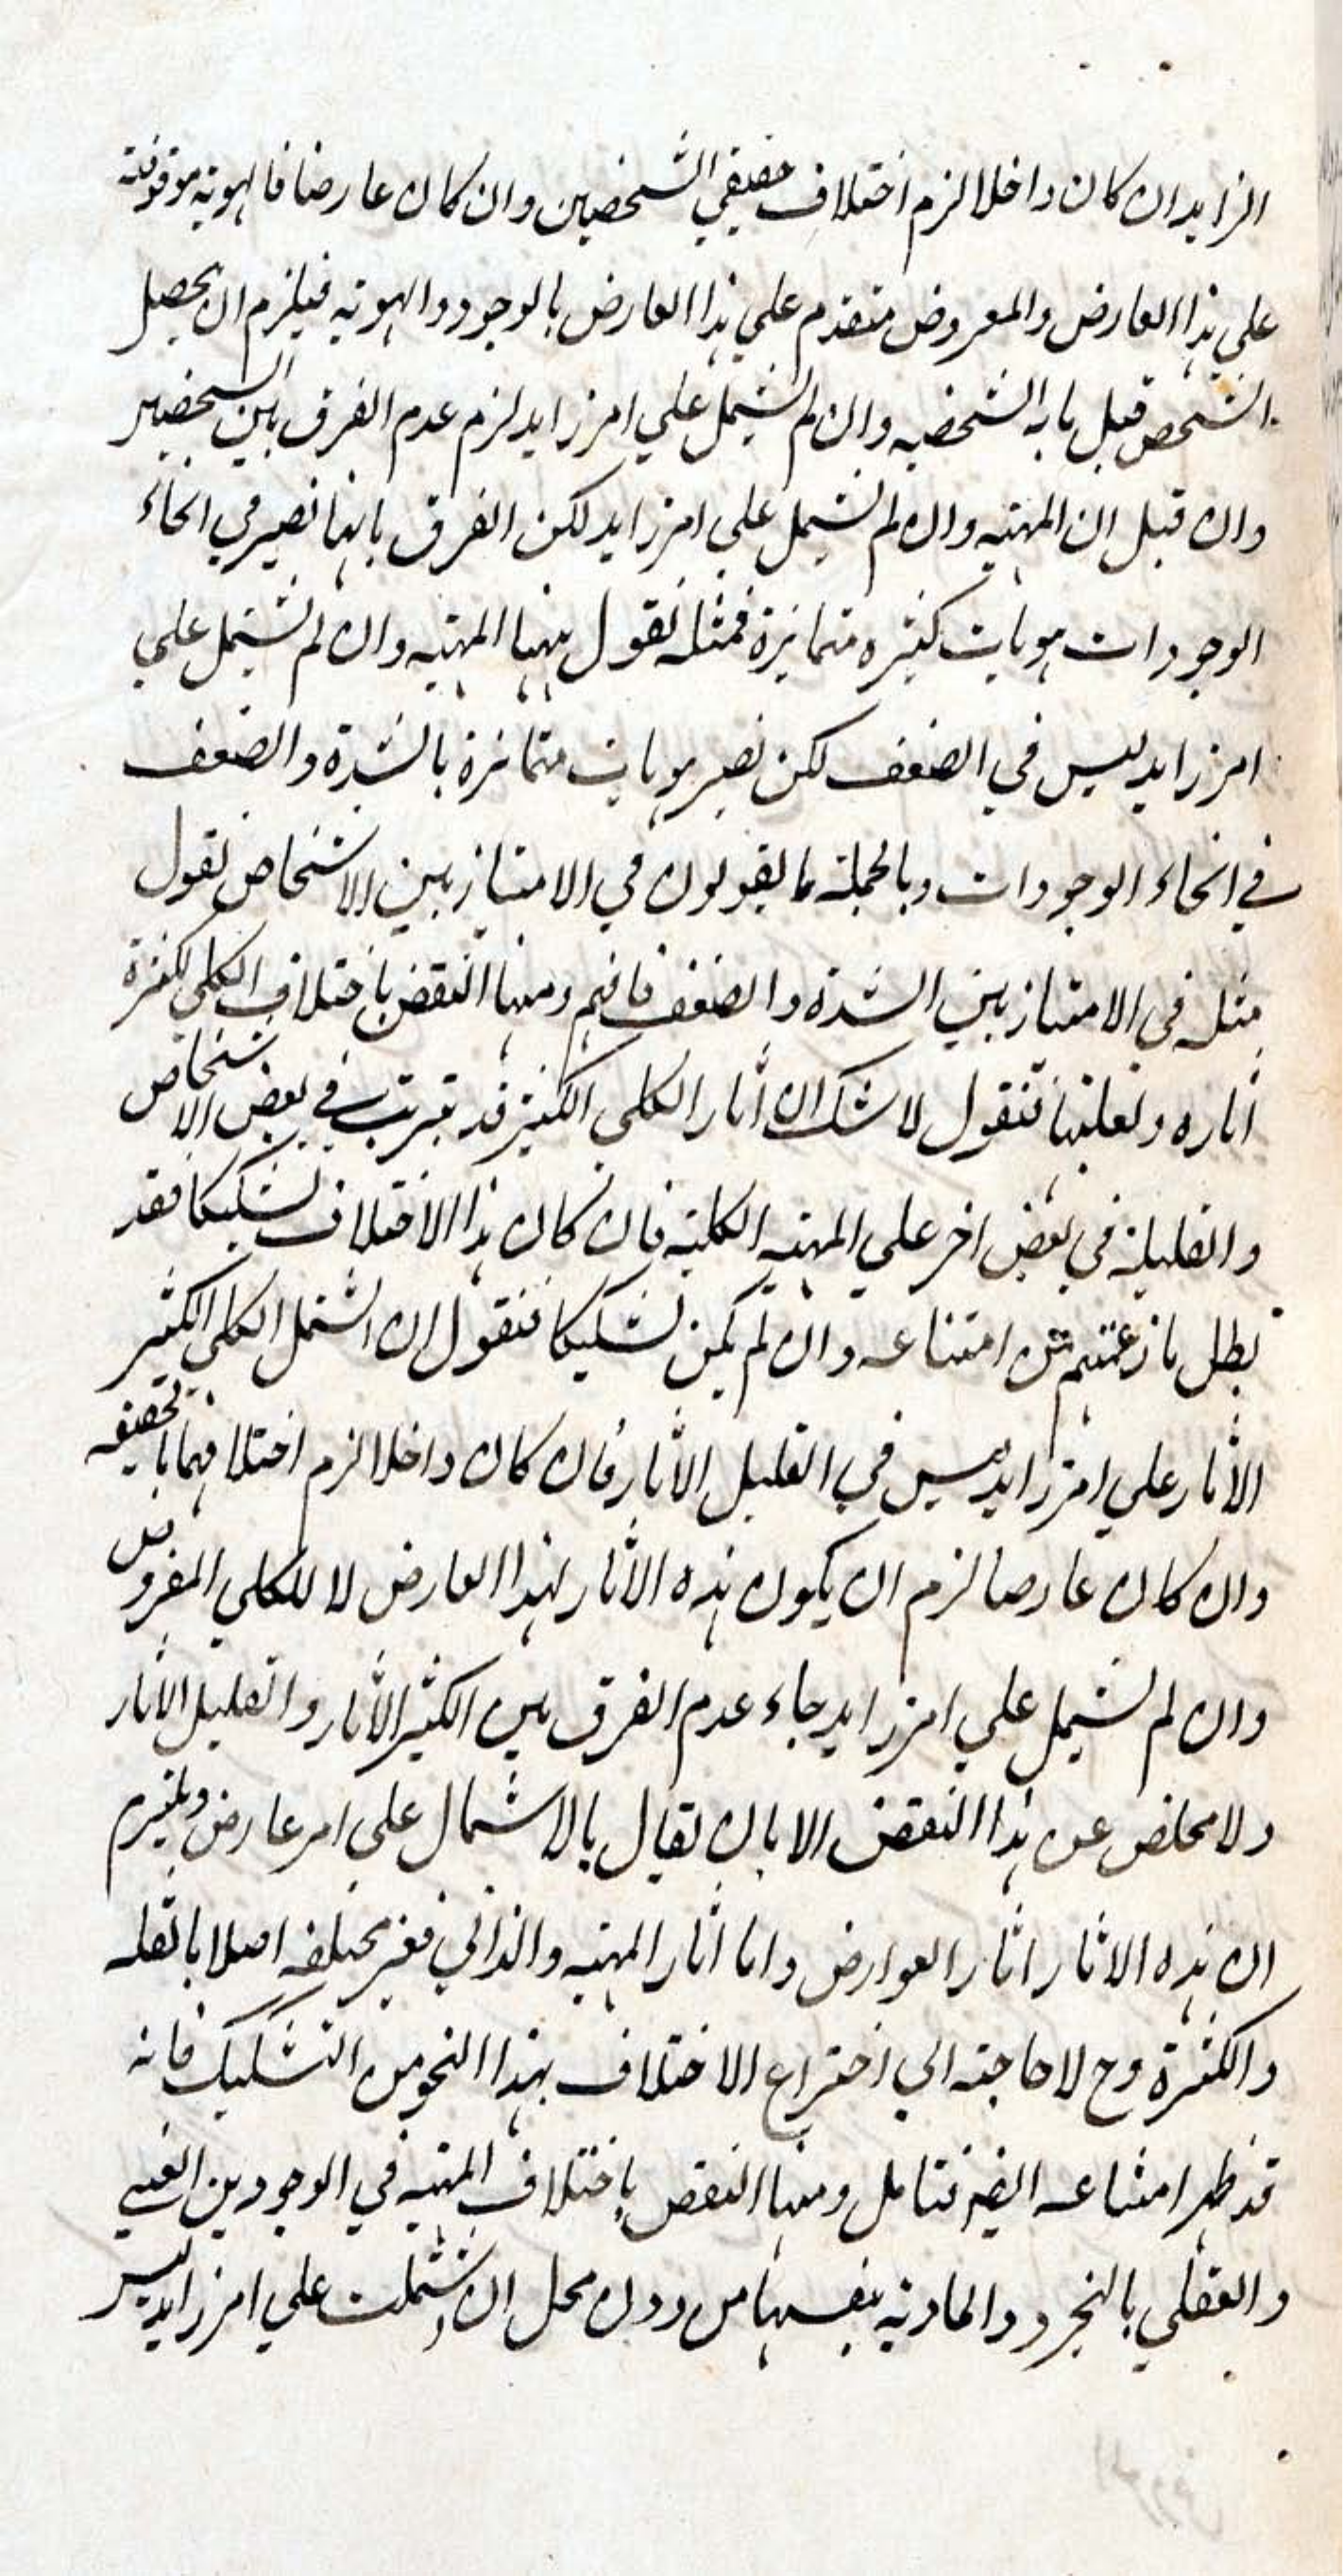 الزايد ان كان داخلا لزم اختلاف حقيقي الشخصين وان كان عارضا فالهوية موقوفة
علي هذا العارض والمعروض متقدم علي هذا العارض بالوجود والهوية فيلزم ان يحصل
الشخص قبل ما به الشخصيه وان لم يشتمل علي امر زايد لزم عدم الفرق بين الشخصين
وان قيل ان المهيه وان لم تشتمل علي امر زايد لكن الفرق بانها تصير في انحاء
الوجودات هويات كثيره متمايزة فمثله نقول ههنا المهيه وان لم تشتمل علي
امر زايد ليس في الضعف لكن تصير هويات متمايزة بالشدة والضعف
في انحاء الوجودات وبالجملة ما يقولون في الامتياز بين الاشخاص نقول
مثله في الامتياز بين الشدة والضعف فافهم ومنها النقض باختلاف الكلي لكثرة
اثاره وقلتها فنقول لا شك ان اثار الكلي الكثير قد يترتب في بعض الاشخاص
والقليلة في بعض اخر علي المهيه الكلية فان كان هذا الاختلاف تشكيكا فقد
بطل ما زعمتم من امتناعه وان لم يكن تشكيكا فنقول ان اشتمل الكلي الكثير
الاثار علي امر زايد ليس في القليل الاثار فان كان داخلا لزم اختلافهما بالحقيقه
وان كان عارضا لزم ان يكون هذه الاثار لهذا العارض لا للكلي المفروض
وان لم يشتمل علي امر زايد جاء عدم الفرق بين الكثير الاثار والقليل الاثار
ولا مخلص عن هذا النقض الا بان يقال بالاشتمال علي امر عارض ويلتزم
ان هذه الاثار اثار العوارض واما اثار المهيه والذاتي فغير مختلفه اصلا بالقله
والكثرة وح لا حاجة الي اختراع الاختلاف بهذا النحو من التشكيك فانه
قد ظهر امتناعه ايضا فتامل ومنها النقض باختلاف المهيه في الوجودين العيني
والعقلي بالتجرد والمادية بنفسها من دون محل ان اشتملت علي امر زايد ليس